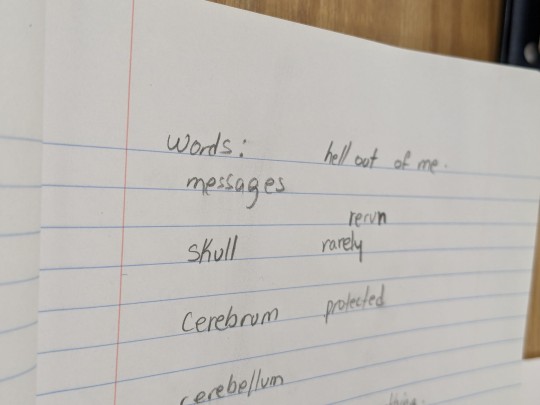 Words: hell out of me.
messages
rerun
skull rarely
Cerebrum protected
cerebellum